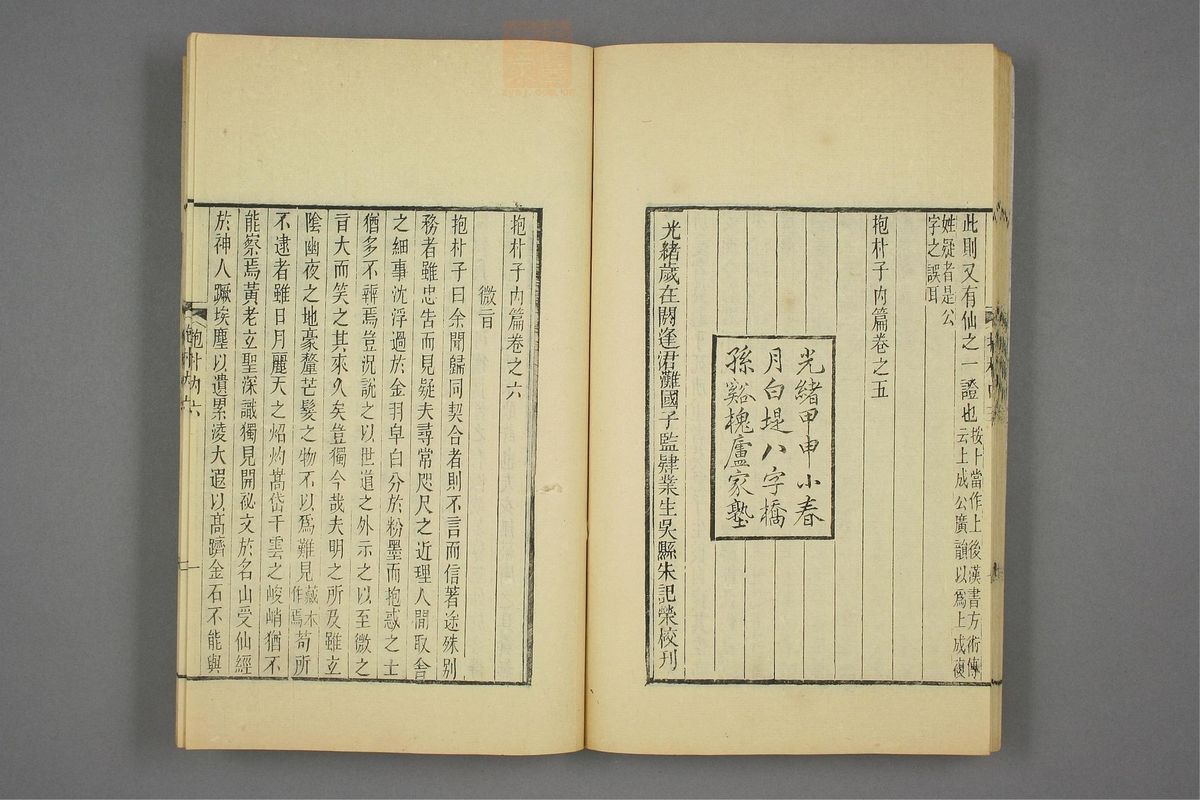 此則又有仙之一證也按卜當作上後漢書方術傳
云上成公廣韻以為上成複
姓疑者是公
字之誤耳
抱朴子內篇卷之五
光緒甲申小春
月白堤八字橋
孫谿槐廬家塾
光緒歲在閼逢涒灘國子監肄業生吳縣朱記榮校刊
抱朴子內篇卷之六
微旨
抱朴子曰余聞歸同契合者則不言而信著途殊別
務者雖忠告而見疑夫尋常咫尺之近理人閒取舍
之細事沈浮過於金羽皁白分於粉墨而抱惑之士
猶多不辨焉豈況說之以世道之外示之以至微之
旨大而笑之其來久矣豈獨今哉夫明之所及雖玄
陰幽夜之地豪釐芒髮之物不以爲難見藏本作焉苟所
不逮者雖日月麗天之炤灼嵩岱干雲之峻峭猶不
能察焉黃老玄聖深識獨見開祕文於名山受仙經
於神人蹶埃塵以遺累淩大遐以高躋金石不能與
抱朴內六
一